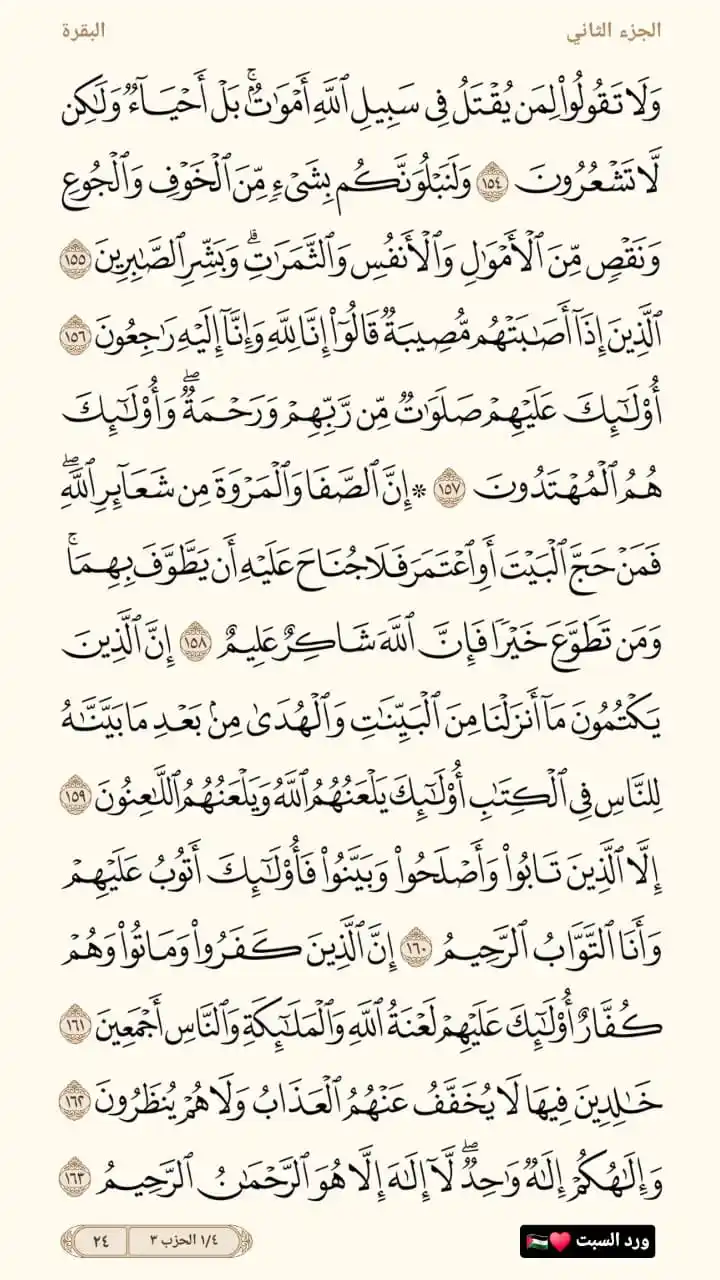 الجزء الثاني البقرة
وَلَا تَقُولُوا۟ لِمَن يُقْتَلُ فِى سَبِيلِ ٱللَّهِ أَمْوَٰتٌۢ ۚ بَلْ أَحْيَآءٌ وَلَٰكِن
لَّا تَشْعُرُونَ ١٥٤ وَلَنَبْلُوَنَّكُم بِشَىْءٍ مِّنَ ٱلْخَوْفِ وَٱلْجُوعِ
وَنَقْصٍ مِّنَ ٱلْأَمْوَٰلِ وَٱلْأَنفُسِ وَٱلثَّمَرَٰتِ ۗ وَبَشِّرِ ٱلصَّٰبِرِينَ ١٥٥
ٱلَّذِينَ إِذَآ أَصَٰبَتْهُم مُّصِيبَةٌ قَالُوٓا۟ إِنَّا لِلَّهِ وَإِنَّآ إِلَيْهِ رَٰجِعُونَ ١٥٦
أُو۟لَٰٓئِكَ عَلَيْهِمْ صَلَوَٰتٌ مِّن رَّبِّهِمْ وَرَحْمَةٌ ۖ وَأُو۟لَٰٓئِكَ
هُمُ ٱلْمُهْتَدُونَ ١٥٧ ۞ إِنَّ ٱلصَّفَا وَٱلْمَرْوَةَ مِن شَعَآئِرِ ٱللَّهِ ۖ
فَمَنْ حَجَّ ٱلْبَيْتَ أَوِ ٱعْتَمَرَ فَلَا جُنَاحَ عَلَيْهِ أَن يَطَّوَّفَ بِهِمَا ۚ
وَمَن تَطَوَّعَ خَيْرًا فَإِنَّ ٱللَّهَ شَاكِرٌ عَلِيمٌ ١٥٨ إِنَّ ٱلَّذِينَ
يَكْتُمُونَ مَآ أَنزَلْنَا مِنَ ٱلْبَيِّنَٰتِ وَٱلْهُدَىٰ مِنۢ بَعْدِ مَا بَيَّنَّٰهُ
لِلنَّاسِ فِى ٱلْكِتَٰبِ أُو۟لَٰٓئِكَ يَلْعَنُهُمُ ٱللَّهُ وَيَلْعَنُهُمُ ٱللَّٰعِنُونَ ١٥٩
إِلَّا ٱلَّذِينَ تَابُوا۟ وَأَصْلَحُوا۟ وَبَيَّنُوا۟ فَأُو۟لَٰٓئِكَ أَتُوبُ عَلَيْهِمْ
وَأَنَا ٱلتَّوَّابُ ٱلرَّحِيمُ ١٦٠ إِنَّ ٱلَّذِينَ كَفَرُوا۟ وَمَاتُوا۟ وَهُمْ
كُفَّارٌ أُو۟لَٰٓئِكَ عَلَيْهِمْ لَعْنَةُ ٱللَّهِ وَٱلْمَلَٰٓئِكَةِ وَٱلنَّاسِ أَجْمَعِينَ ١٦١
خَٰلِدِينَ فِيهَا لَا يُخَفَّفُ عَنْهُمُ ٱلْعَذَابُ وَلَا هُمْ يُنظَرُونَ ١٦٢
وَإِلَٰهُكُمْ إِلَٰهٌ وَٰحِدٌ ۖ لَّآ إِلَٰهَ إِلَّا هُوَ ٱلرَّحْمَٰنُ ٱلرَّحِيمُ ١٦٣
ورد السبت ♥️🇵🇸 ١/٤ الحزب ٣ ٢٤